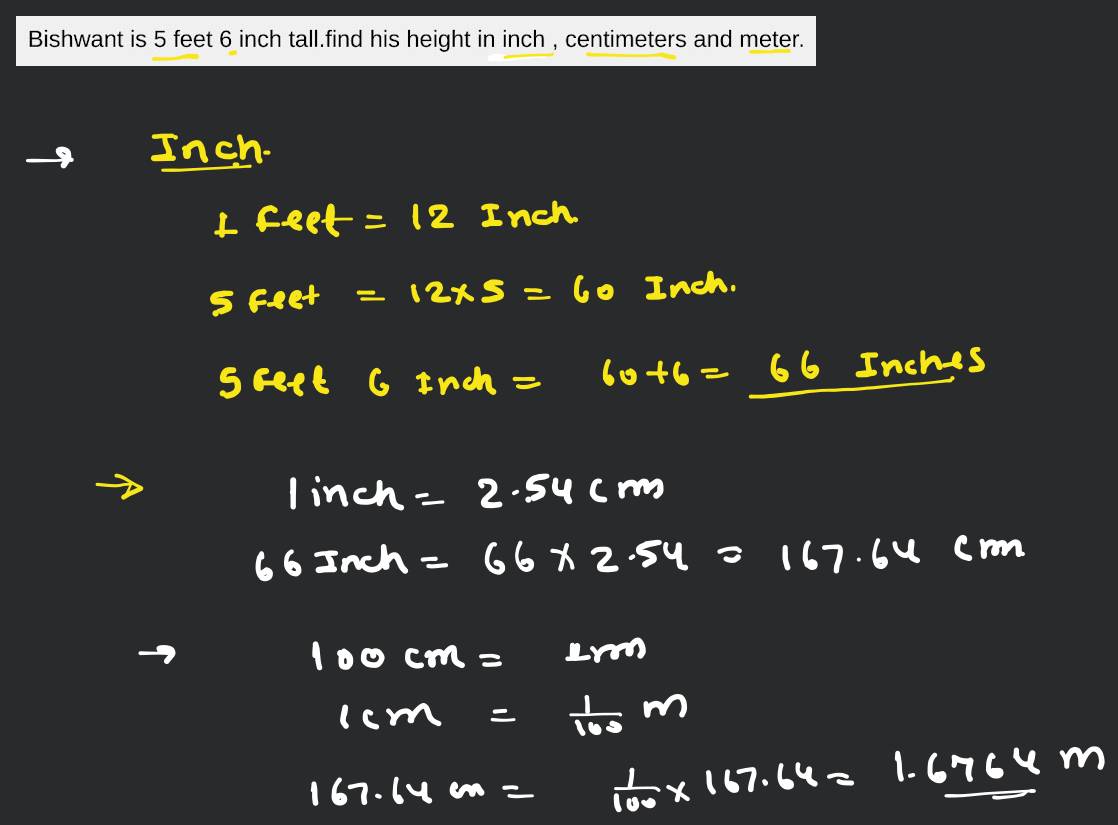 Bishwant is 5 feet 6 inch tall.find his height in inch , centimeters and meter.
→ Inch.
1 feet = 12 Inch.
5 feet = 12×5 = 60 Inch.
5 feet 6 Inch = 60+6 = 66 Inches
→ 1 inch = 2.54 cm
66 Inch = 66 × 2.54 = 167.64 cm
→ 100 cm = 1m
1cm = 1/100 m
167.64 cm = 1/100 × 167.64 = 1.6764 m